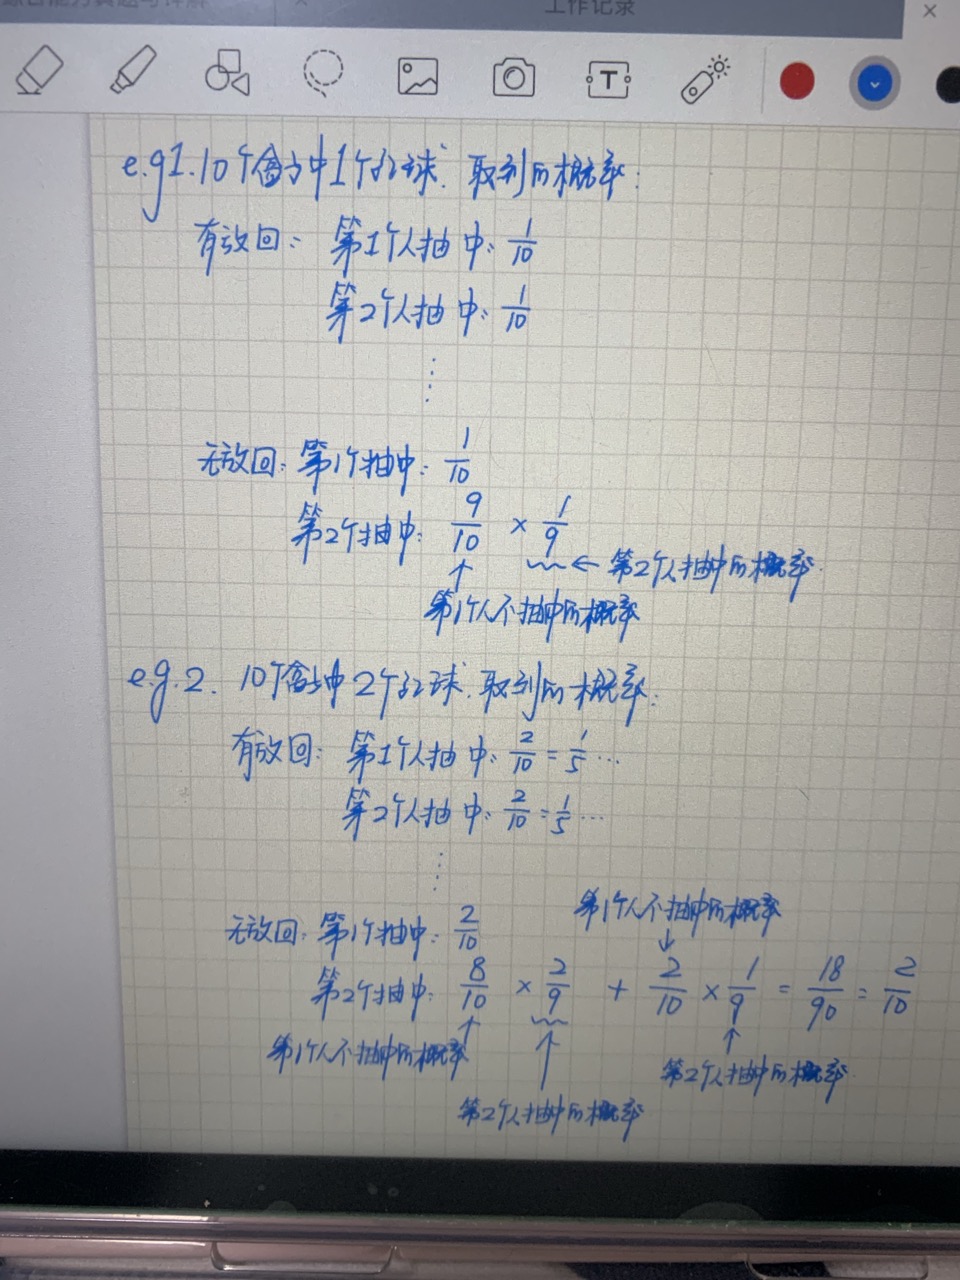 工作记录
T
e.g1.10个盒子中1个红球.取到的概率:
有放回: 第1个人抽中: 1/10
第2个人抽中: 1/10
⋮
无放回: 第1个抽中: 1/10
第2个抽中: 9/10 × 1/9
← 第2个人抽中的概率.
↑
第1个人不抽中的概率
e.g.2. 10个盒子中2个红球.取到的概率:
有放回: 第1个人抽中: 2/10 = 1/5 ...
第2个人抽中: 2/10 = 1/5 ...
⋮
第1个人不抽中的概率
↓
无放回: 第1个抽中: 2/10
第2个抽中: 8/10 × 2/9 + 2/10 × 1/9 = 18/90 = 2/10
第1个人不抽中的概率
第2个人抽中的概率.
第2个人抽中的概率